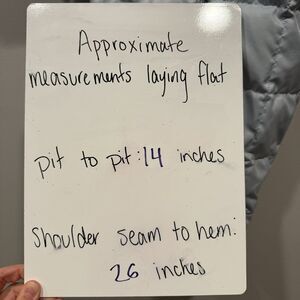 Approximate
measurements laying flat
pit to pit: 14 inches
Shoulder seam to hem:
26 inches